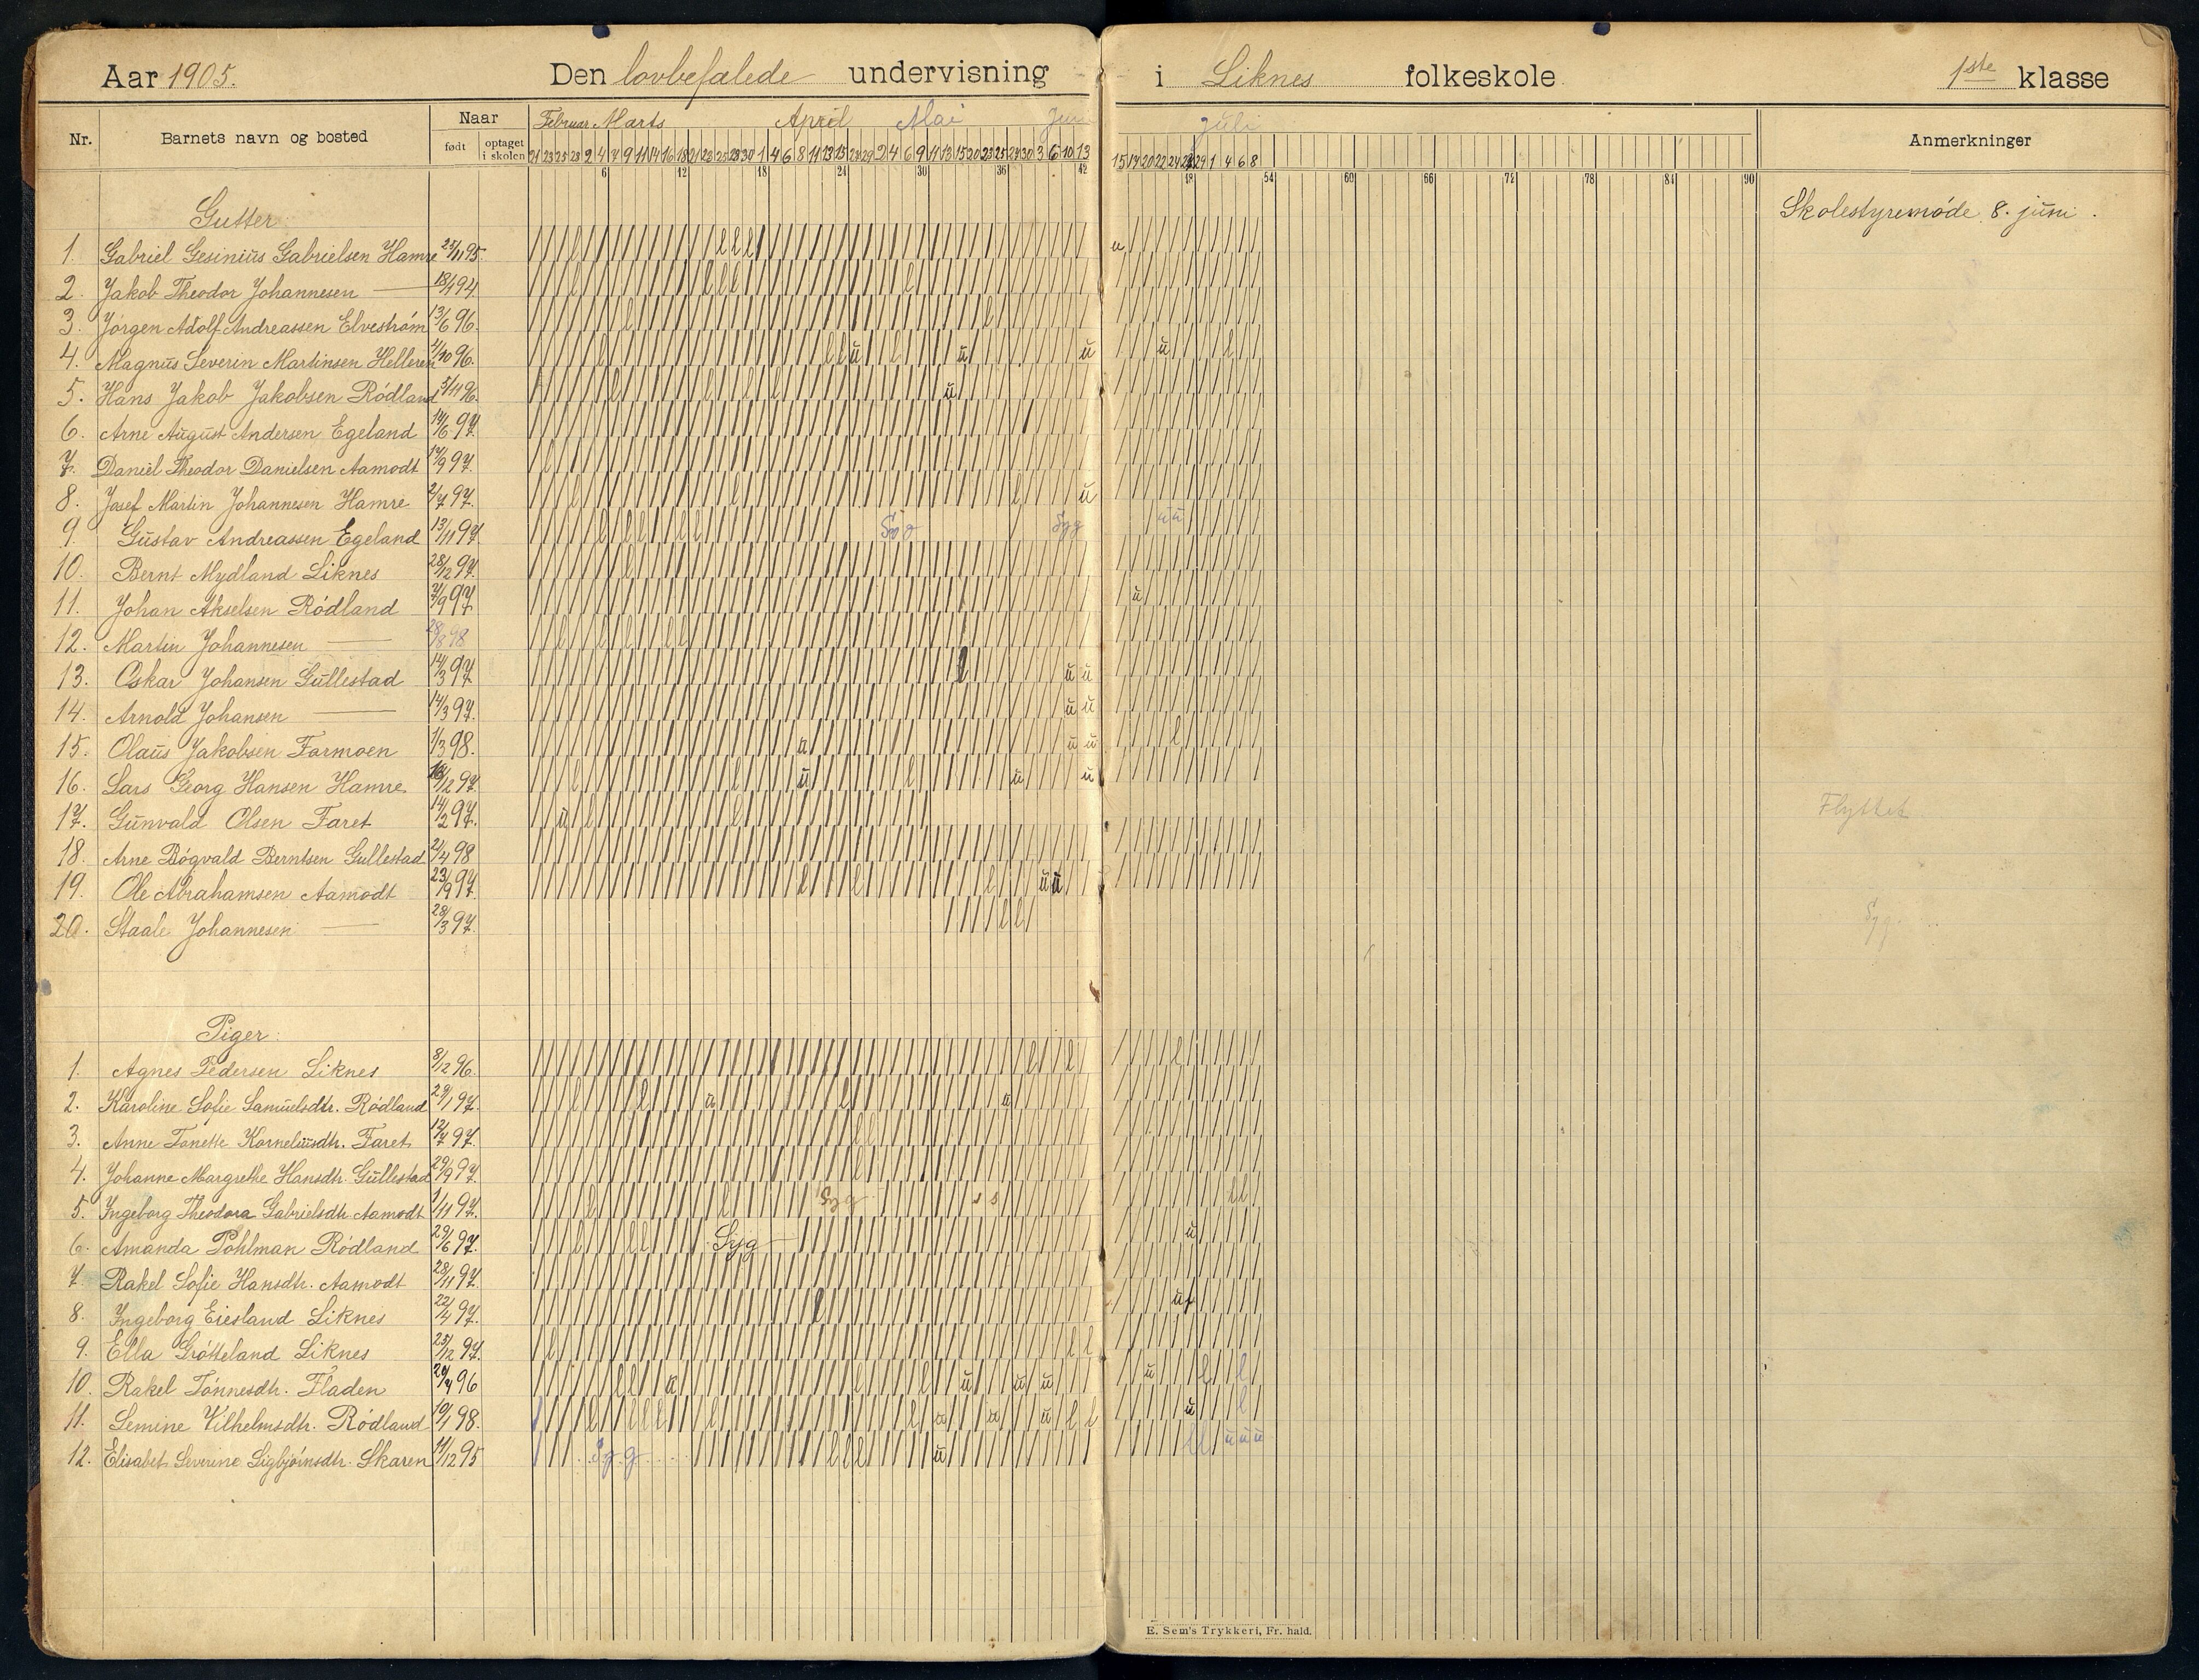 Aar 1905. Den lovbefalede undervisning i Liknes folkeskole 1ste klasse
Nr. Barnets navn og bosted Naar Februar Marts April Mai Jun Juli Anmerkninger
født optaget i skolen
6 12 18 24 30 36 42 48 54 60 66 72 78 84 90
Gutter: Skolestyremøde 8. juni.
1. Gabriel Gesinius Gabrielsen Hamre 23/11 95.
2. Jakob Theodor Johannesen — 18/1 94
3. Jørgen Adolf Andreassen Elvestrøm 13/6 96.
4. Magnus Severin Martinsen Helleren 1/10 96.
5. Hans Jakob Jakobsen Rødland 5/11 96.
6. Arne August Andersen Egeland 14/6 97.
7. Daniel Theodor Danielsen Aamodt 17/9 97.
8. Josef Martin Johannesen Hamre 2/7 97.
9. Gustav Andreassen Egeland 13/11 97. Syg Syg
10. Bernt Mydland Liknes 28/12 97.
11. Johan Akselsen Rødland 7/9 97
12. Martin Johannesen — 28/8 98
13. Oskar Johansen Gullestad 14/3 97
14. Arnold Johansen — 14/3 97.
15. Olaus Jakobsen Farmoen 1/3 98.
16. Lars Georg Hansen Hamre 16/12 97.
17. Gunvald Olsen Faret 14/2 97. Flyttet
18. Arne Bøgvald Berntsen Gullestad 2/4 98
19. Ole Abrahamsen Aamodt 23/9 97
20. Staale Johannesen — 28/3 97. Syg
Piger:
1. Agnes Pedersen Liknes 8/12 96.
2. Karoline Sofie Samuelsdtr. Rødland 29/1 97.
3. Anne Tonette Korneliusdtr. Faret 12/7 97.
4. Johanne Margrethe Hansdtr. Gullestad 29/9 97.
5. Ingeborg Theodora Gabrielsdtr. Aamodt 1/11 97. Syg s s
6. Amanda Pohlman Rødland 29/6 97. Syg
7. Rakel Sofie Hansdtr. Aamodt 28/11 97.
8. Ingeborg Eiesland Liknes 22/4 97.
9. Ella Grøtteland Liknes 25/12 97.
10. Rakel Tønnesdtr. Fladen 20/4 96
11. Semine Vilhelmsdtr. Rødland 10/1 98.
12. Elisabet Severine Sigbjørnsdtr. Skaren 11/12 95 Syg
E. Sem's Trykkeri, Fr. hald.